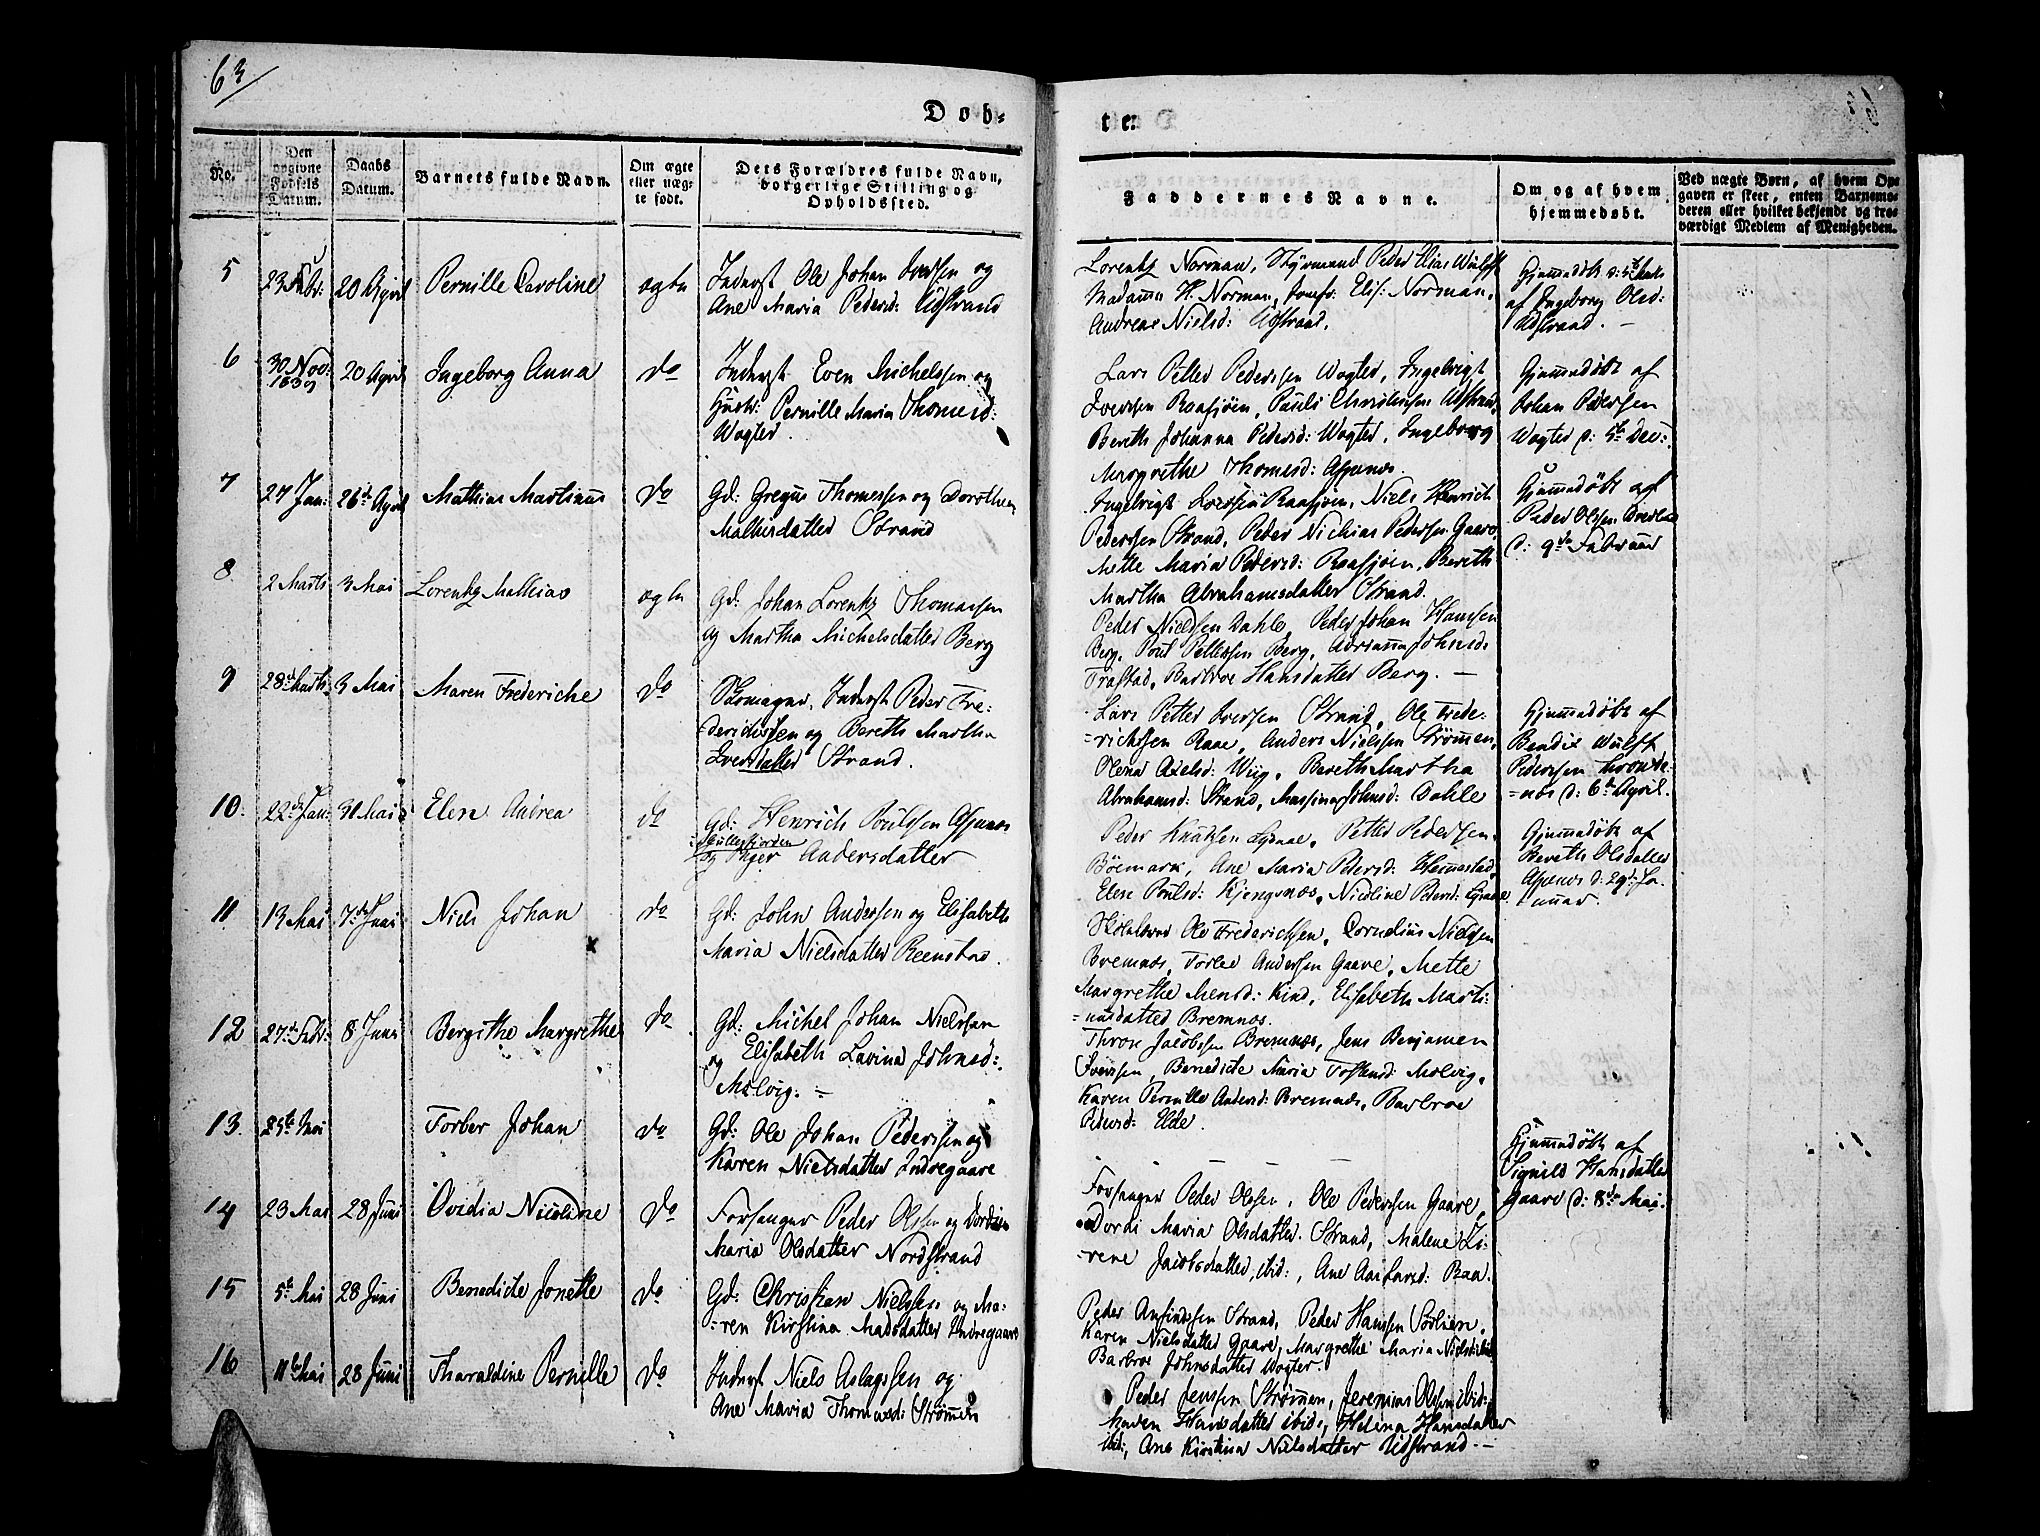 63
Døb-
te.
No.
Den
opgivne
Fødsels
Datum.
Daabs
Datum.
Barnets fulde Navn.
Om ægte
eller uæg-
te født.
Dets Forældres fulde Navn,
borgerlige Stilling og
Opholdssted.
Faddernes Navne.
Om og af hvem
hjemmedøbt.
Ved uægte Børn, af hvem Op-
gaven er skeet, enten Barnemo-
deren eller hvilket bekjendt og tro-
værdigt Medlem af Menigheden.
5
23 Febr:
20 April
Pernille Caroline
ægte
Inderst Ole Johan Iversen og
Ane Maria Pedersd: Udstrand
Lorentz Norman, Styrmand Peder Elias Wulff
Madamme H. Norman, Jomfr: Elis: Norman,
Andreae Nielsd: Udstrand.
af Ingeborg Olsd:
Udstrand. –
6
30 Nov:
1839
20 April
Ingeborg Anna
do
Inderst Even Michelsen og
Hustr: Pernille Maria Thomesd:
Wogter.
Lars Petter Pedersen Wogter, Ingebrigt
Iversen Raasjøen, Pauls Christensen Udstrand,
Bereth Johanna Pedersd: Wogter, Ingeborg
Margrethe Thomesd: Aspenes.
Hjemmedøbt af
Johan Pedersen
Wogter d: 5te Dec:
7
27 Jan:
26de April
Mathias Martinus
do
Gd: Gregus Thomessen og Dorothea
Mathisdatter Strand
Ingebrigt Iversen Raasjøen, Niels Henrich
Pedersen Strand, Peder Nichias Pedersen Gaare,
Mette Maria Pedersd: Raasjøen, Bereth
Martha Abrahamsdatter Strand.
Hjemmedøbt af
Peder Olsen
d: 9de Februar
8
2 Marts
3 Mai
Lorentz Mathias
ægte
Gd: Johan Lorentz Thomassen
og Martha Michelsdatter Berg
Peder Nielsen Dahle, Peder Johan Hansen
Berg, Poul Pettersen Berg, Adrianna Johnsd:
Trastad, Barbroe Hansdatter Berg. –
9
28de Marts
3 Mai
Maren Frederiche
do
Skomager, Inderst Peder Fre-
-derichssen og Bereth Martha
Iversdatter Strand.
Lars Petter Iversen Strand, Ole Frede-
-richssen Raae, Anders Nielssen Strømmen,
Olena Axelsd: Wiig, Bereth Martha
Abrahamsd: Strand, Massina Johnsd: Dahle
Hjemmedøbt af
Bendix Wulff
Pedersen Tronde-
-næs d: 6te April.
10.
22de Jan:
31 Mai
Elen Andrea
do
Gd: Henrich Poulsen Aspenes
Gullesfjorden
og Inger Andersdatter
Peder Knutzen Lysaae, Petter Pedersen
Bøemark, Ane Maria Pedersd: Hemmestad,
Elen Poulsd: Kjengsnæs, Nicoline Pedersd: Graae
Hjemmedøbt af
Bereth Olsdatter
Aspenes d: 29de Ja-
nuar.
11
13 Mai
7de Juni
Niels Johan
do
Gd: John Andersen og Elisabeth
Maria Nielsdatter Reenstad.
Skolelærer Ole Frederichsen, Cornelius Nielsen
Bremnæs, Torber Andersen Gaare, Mette
Margrethe Mensd: Kind, Elisabeth Marti-
-nusdatter Bremnæs.
12
27de Febr:
8 Juni
Bergithe Margrethe
do
Gd: Michel Johan Nielssen
og Elisabeth Lavina Johnsd:
Melvig: =
Thron Jacobsen Bremnæs, Jens Benjamen
Iversen, Benedicte Maria Tostensd: Melvig,
Karen Pernille Andersd: Bremnæs, Barbroe
Pedersd: Elde.
13.
25te Mai
Torber Johan
do
Gd: Ole Johan Pederssen og
Karen Nielsdatter Indregaare
– – – –
Hjemmedøbt af
Signild Hansdatter
Gaare d: 8de Mai.
14
23 Mai
28 Juni
Ovidia Nicoline
do
Forsanger Peder Olsen og Dordi
Maria Olsdatter Nordstrand
Forsanger Peder Olsen, Ole Pedersen Gaare,
Dordi Maria Olsdatter Strand, Malene Li-
-rene Jacobsdatter, ibid:, Ane Aaslavsd: Raa.
15
5te Mai
28 Juni
Benedicte Jonette
do
Gd: Christen Nielssen og Ma-
-ren Kirstina Madsdatter Indregaare
Peder Ansindssen Strand, Peder Hansen Sørlien,
Karen Nielsdatter Gaare, Margrethe Maria Nielsd: ibid:
Barbroe Johnsdatter Wogter.
16
11te Mai
28 Juni
Tharaldine Pernille
do
Inderst Niels Aslagssen og
Ane Maria Thomasd: Strømmen
Peder Jenssen Strømmen, Jeremias Olssen ibid:,
Maren Hansdatter ibid:, Helena Hansdatter
ibid:, Ane Kirstina Nielsdatter Udstrand. –